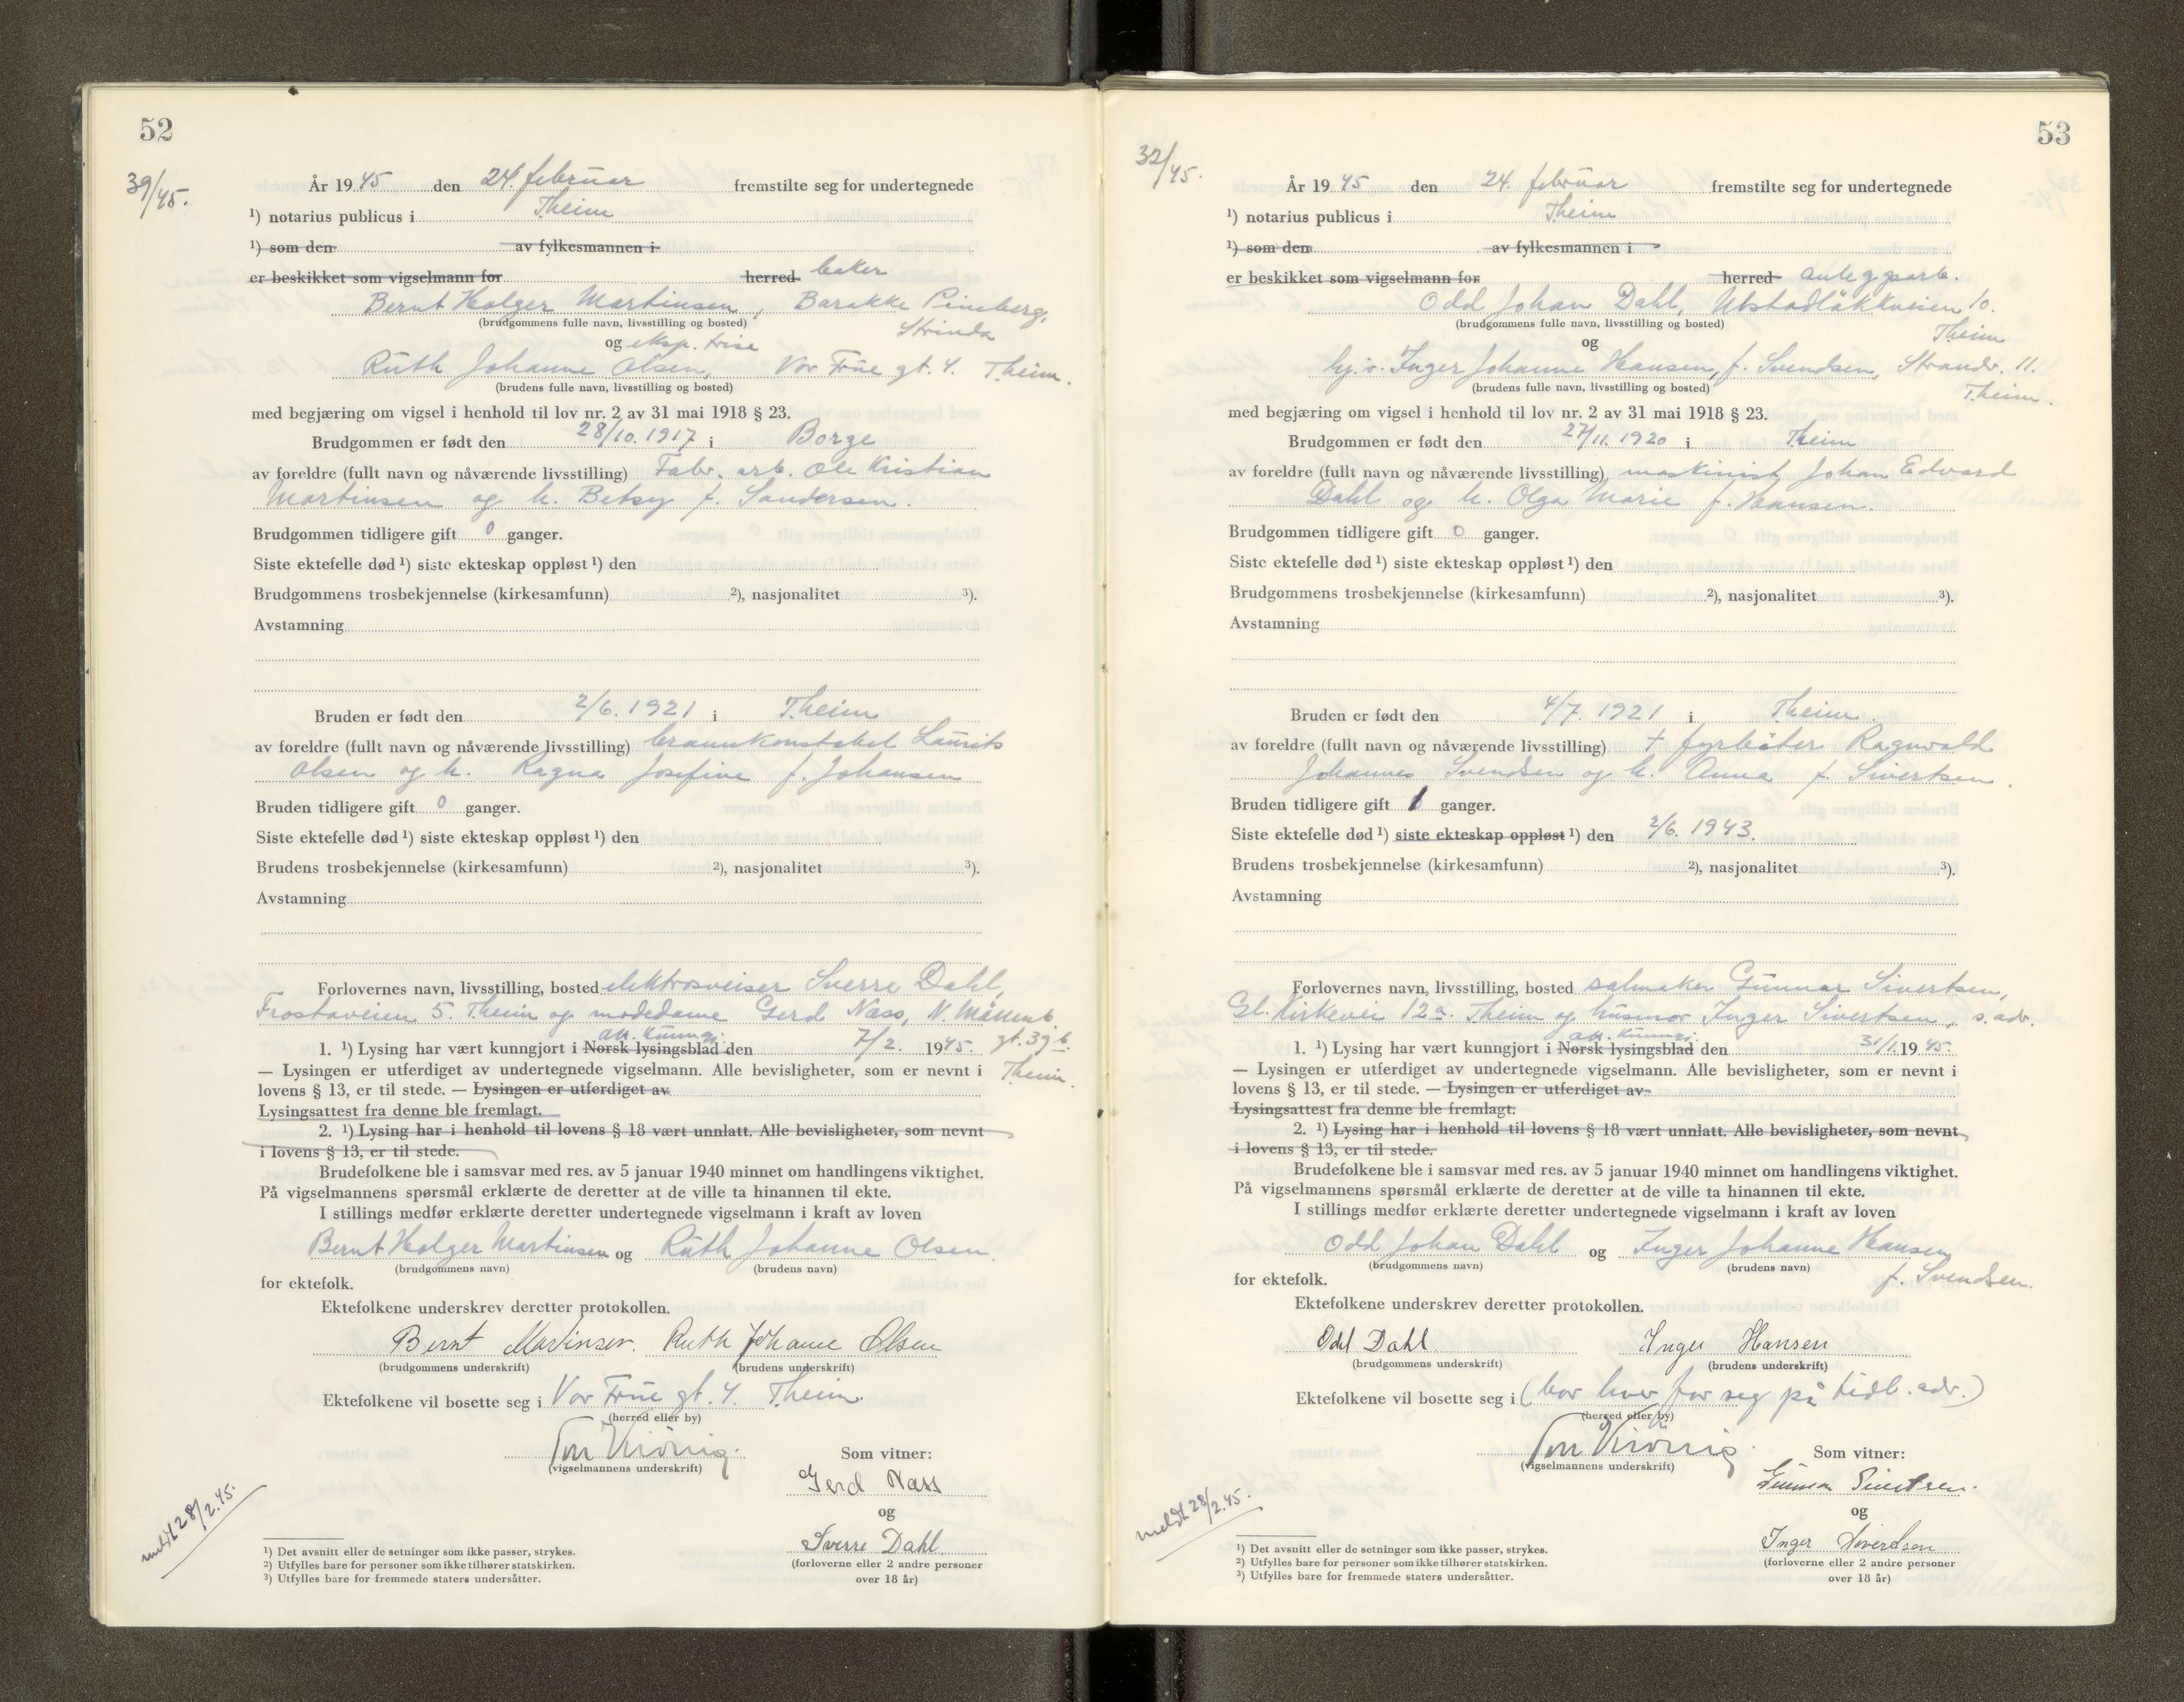 52
39/45.
År 1945 den 24. februar fremstilte seg for undertegnede
¹) notarius publicus i Theim
¹) som den av fylkesmannen i
er beskikket som vigselmann for herred baker
Bernt Holger Martinsen, Barakke Pineberg,
(brudgommens fulle navn, livsstilling og bosted) Strinda
og eksp. trise
Ruth Johanne Olsen, Vor Frue gt. 4. Theim.
(brudens fulle navn, livsstilling og bosted)
med begjæring om vigsel i henhold til lov nr. 2 av 31 mai 1918 § 23.
Brudgommen er født den 28/10. 1917 i Borge
av foreldre (fullt navn og nåværende livsstilling) Fabr. arb. Ole Kristian
Martinsen og h. Betsy f. Sandersen.
Brudgommen tidligere gift 0 ganger.
Siste ektefelle død ¹) siste ekteskap oppløst ¹) den
Brudgommens trosbekjennelse (kirkesamfunn) ²), nasjonalitet ³).
Avstamning
Bruden er født den 2/6. 1921 i Theim
av foreldre (fullt navn og nåværende livsstilling) brannkonstabel Laurits
Olsen og h. Ragna Josefine f. Johansen
Bruden tidligere gift 0 ganger.
Siste ektefelle død ¹) siste ekteskap oppløst ¹) den
Brudens trosbekjennelse (kirkesamfunn) ²), nasjonalitet ³).
Avstamning
Forlovernes navn, livsstilling, bosted elektrosveiser Sverre Dahl,
Frostaveien 5. Theim og modedame Gerd Nass, N. Møllenb.
att. kunngj. gt. 39 b.
1. ¹) Lysing har vært kunngjort i Norsk lysingsblad den 7/2. 1945.
— Lysingen er utferdiget av undertegnede vigselmann. Alle bevisligheter, som er nevnt i Theim.
lovens § 13, er til stede. — Lysingen er utferdiget av
Lysingsattest fra denne ble fremlagt.
2. ¹) Lysing har i henhold til lovens § 18 vært unnlatt. Alle bevisligheter, som nevnt
i lovens § 13, er til stede.
Brudefolkene ble i samsvar med res. av 5 januar 1940 minnet om handlingens viktighet.
På vigselmannens spørsmål erklærte de deretter at de ville ta hinannen til ekte.
I stillings medfør erklærte deretter undertegnede vigselmann i kraft av loven
Bernt Holger Martinsen og Ruth Johanne Olsen.
(brudgommens navn) (brudens navn)
for ektefolk.
Ektefolkene underskrev deretter protokollen.
Bernt Martinsen. Ruth Johanne Olsen
(brudgommens underskrift) (brudens underskrift)
Ektefolkene vil bosette seg i Vor Frue gt. 4. Theim.
(herred eller by)
(vigselmannens underskrift)
Som vitner:
Gerd Nass
og
Sverre Dahl
(forloverne eller 2 andre personer
over 18 år)
meldt 28/2.45.
¹) Det avsnitt eller de setninger som ikke passer, strykes.
²) Utfylles bare for personer som ikke tilhører statskirken.
³) Utfylles bare for fremmede staters undersåtter.
53
32/45.
År 1945 den 24. februar fremstilte seg for undertegnede
¹) notarius publicus i Theim
¹) som den av fylkesmannen i
er beskikket som vigselmann for herred anleggsarb.
Odd Johan Dahl, Ubstadløkkveien 10.
(brudgommens fulle navn, livsstilling og bosted) Theim
og
hj.v. Inger Johanne Hansen, f. Svendsen, Strandv. 11.
(brudens fulle navn, livsstilling og bosted) Theim.
med begjæring om vigsel i henhold til lov nr. 2 av 31 mai 1918 § 23.
Brudgommen er født den 27/11. 1920 i Theim
av foreldre (fullt navn og nåværende livsstilling) maskinist Johan Edvard
Dahl og h. Olga Marie f. Hansen.
Brudgommen tidligere gift 0 ganger.
Siste ektefelle død ¹) siste ekteskap oppløst ¹) den
Brudgommens trosbekjennelse (kirkesamfunn) ²), nasjonalitet ³).
Avstamning
Bruden er født den 4/7. 1921 i Theim.
av foreldre (fullt navn og nåværende livsstilling) † fyrbøter Ragnvald
Johannes Svendsen og h. Anna f. Sivertsen.
Bruden tidligere gift 1 ganger.
Siste ektefelle død ¹) siste ekteskap oppløst ¹) den 2/6. 1943.
Brudens trosbekjennelse (kirkesamfunn) ²), nasjonalitet ³).
Avstamning
Forlovernes navn, livsstilling, bosted salmaker Gunnar Sivertsen,
Gl. Kirkevei 12a. Theim og husmor Inger Sivertsen, s. adr.
att. kunngj.
1. ¹) Lysing har vært kunngjort i Norsk lysingsblad den 31/1. 1945.
— Lysingen er utferdiget av undertegnede vigselmann. Alle bevisligheter, som er nevnt i
lovens § 13, er til stede. — Lysingen er utferdiget av
Lysingsattest fra denne ble fremlagt.
2. ¹) Lysing har i henhold til lovens § 18 vært unnlatt. Alle bevisligheter, som nevnt
i lovens § 13, er til stede.
Brudefolkene ble i samsvar med res. av 5 januar 1940 minnet om handlingens viktighet.
På vigselmannens spørsmål erklærte de deretter at de ville ta hinannen til ekte.
I stillings medfør erklærte deretter undertegnede vigselmann i kraft av loven
Odd Johan Dahl og Inger Johanne Hansen
(brudgommens navn) (brudens navn) f. Svendsen.
for ektefolk.
Ektefolkene underskrev deretter protokollen.
Odd Dahl Inger Hansen
(brudgommens underskrift) (brudens underskrift)
Ektefolkene vil bosette seg i (bor hver for seg på tidl. adr.)
(herred eller by)
(vigselmannens underskrift)
Som vitner:
Gunnar Sivertsen.
og
Inger Sivertsen
(forloverne eller 2 andre personer
over 18 år)
meldt 28/2.45.
¹) Det avsnitt eller de setninger som ikke passer, strykes.
²) Utfylles bare for personer som ikke tilhører statskirken.
³) Utfylles bare for fremmede staters undersåtter.